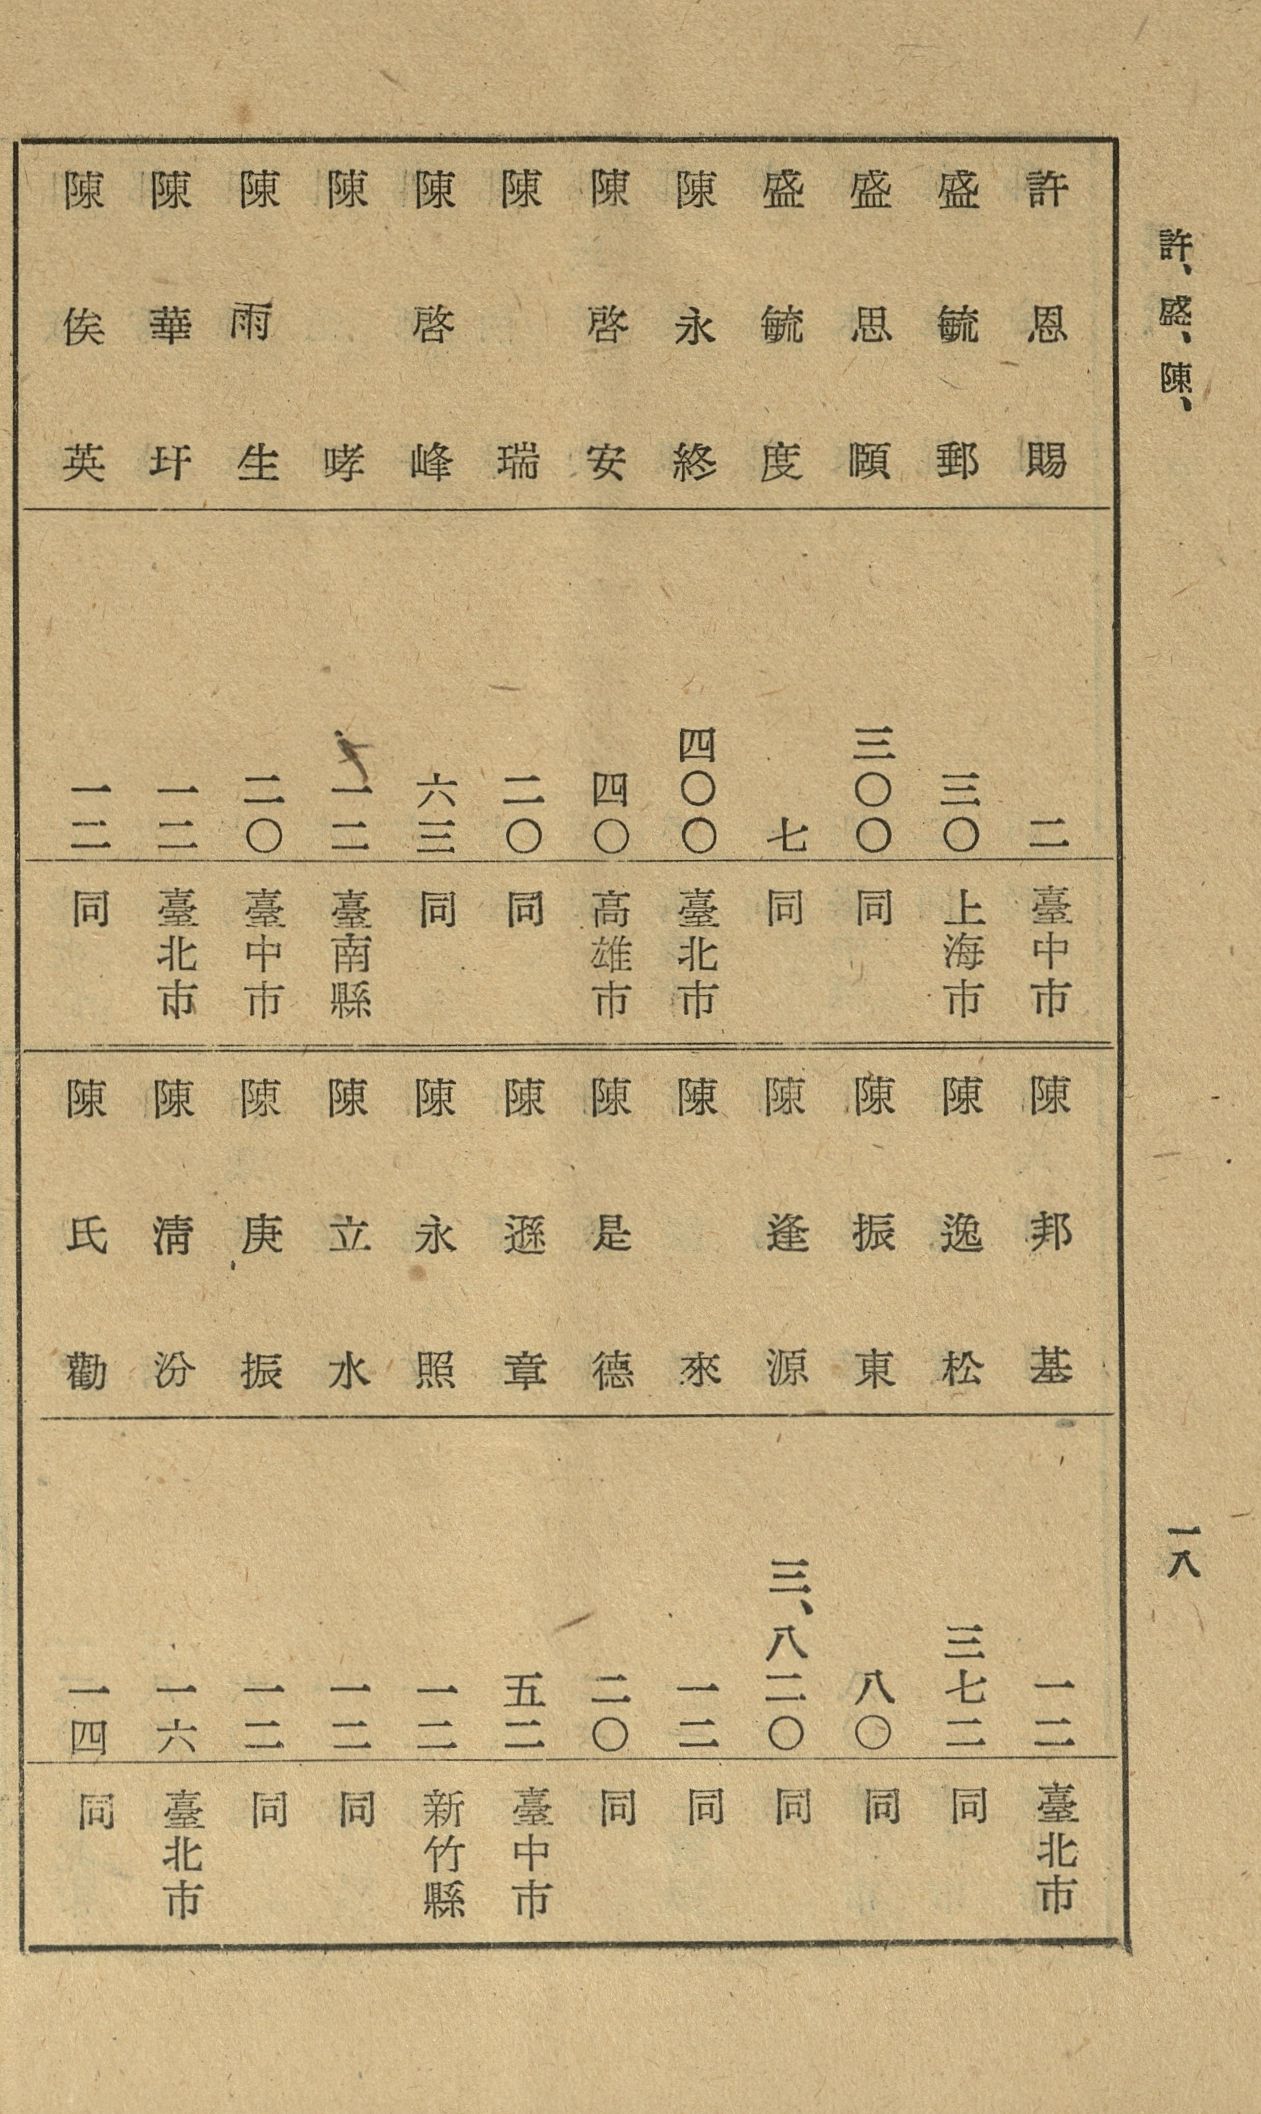 許、盛、陳、
一八
許恩賜 二 臺中市
盛毓郵 三〇 上海市
盛思頤 三〇〇 同
盛毓度 七 同
陳永終 四〇〇 臺北市
陳啓安 四〇 高雄市
陳瑞 二〇 同
陳啓峰 六三 同
陳哮 一二 臺南縣
陳雨生 二〇 臺中市
陳華玗 一二 臺北市
陳俟英 一二 同
陳邦基 一二 臺北市
陳逸松 三七二 同
陳振東 八〇 同
陳逢源 三、八二〇 同
陳來 一二 同
陳是德 二〇 同
陳遜章 五二 臺中市
陳永照 一二 新竹縣
陳立水 一二 同
陳庚振 一二 同
陳淸汾 一六 臺北市
陳氏勸 一四 同